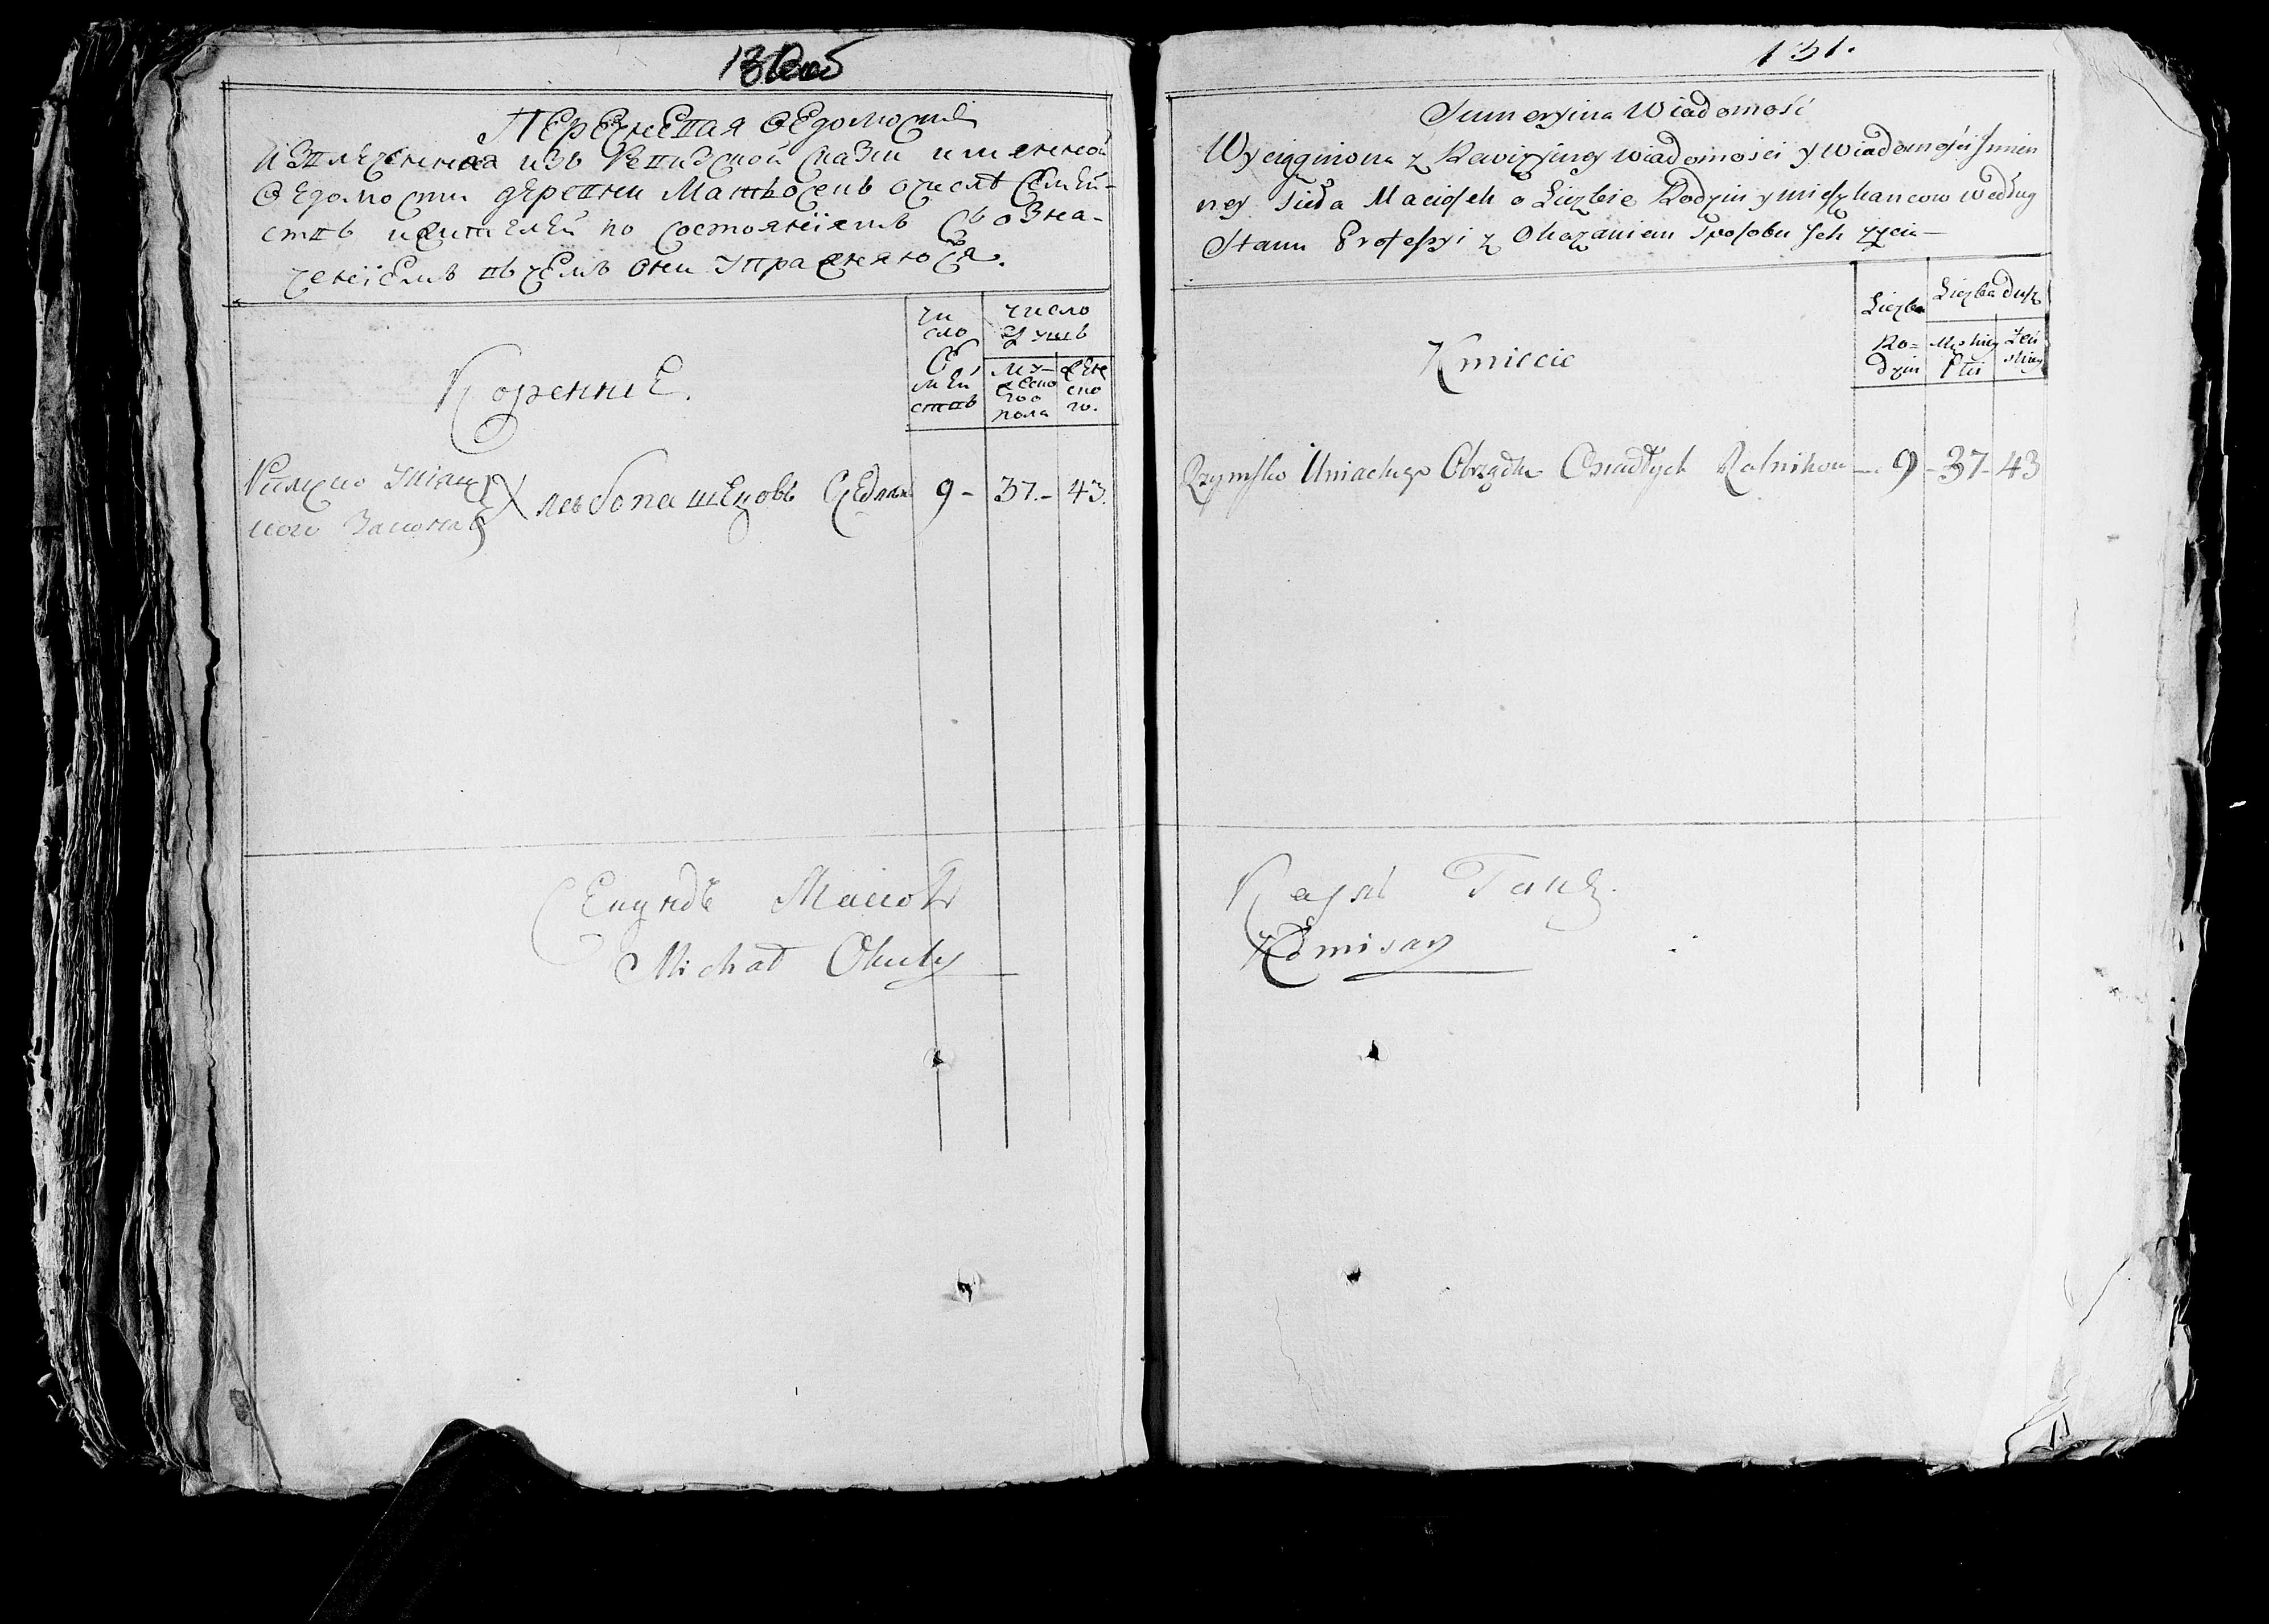 Перечневая Ведомость
Извлеченная изъ Ревизской Сказки имянной
Ведомости деревни Матьосекъ очислѣ Семей-
ствъ ижителей по Состояніямъ Съ озна-
ченіемъ въ чемъ они упражняются.
Чи
сло
Се
мей
ствъ
число
Душъ
му-
жеско
гоо
пола
жене
ско
го.
Коренние.
Римско Уніац
кого Закона
хлебопашецовъ 9 - 37. - 43.
Michał
131.
Sumeryina Wiadomość
Wyciągniona z Rewizyiney wiadomości y wiadomości Jmien
ney Sieła Maciosek o Liczbie Rodzin y mieszkancow według
Stanu Professyi z Okazaniem Sposobu Jch życia —
Liczba
Ro=
dzin
Liczba dusz
Męskiey
Płci
Żeń
skiey
Kmiecie
Rzymsko Uniackiego Obrządku Osiadłych Rolnikow — 9 - 37 - 43
Карлъ
Komisarz